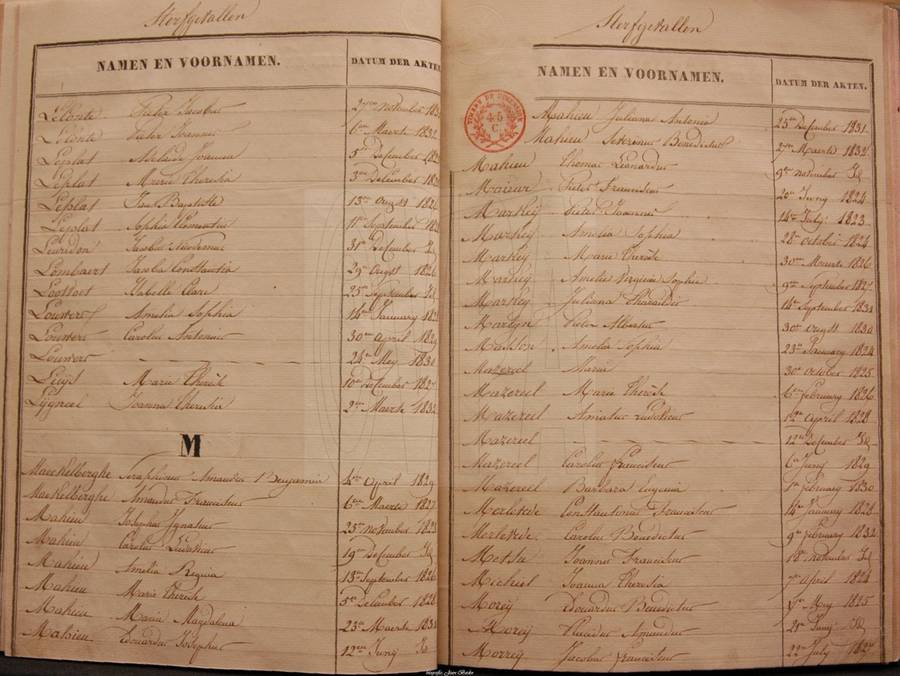 Sterfgevallen
NAMEN EN VOORNAMEN. DATUM DER AKTEN.
Lelonte Pieter Jacobus 27en November 183
Lelonte Pieter Joannes 6en Maerte 1832
Leplat Adelaide Joanna 5en December 182
Leplat Marie Theresia 3en December 182
Leplat Jean Baptiste 13en Ougst 182
Leplat Sophia Clementia 11en September 182
Leuridon Jacobus 31en December Id
Lombaert Jacoba Constantia 29en Ougst 1826
Lootvoet Isabelle Clara 25en September Id
Louwers Amelia Sophia 14en January 182
Louwers Carolus Antonius 30en April 1829
Louwers — 24en Mey 1831
Luys Marie Therése 10en December 182
Lyneel Joanna Theresia 2en Maerte 1832
M
Maeckelberghe Seraphinus Amandus Benjamin 4en April 1829
Maekelberghe Amandus Franciscus 6en Maerte 182
Mahieu Josephus Ignatius 25en November 1825
Mahieu Carolus Ludovicus 19en December Id
Mahieu Amelia Regina 13en September 1826
Mahieu Marie Therése 5en December 1828
Mahieu Maria Magdalena 23en Maerte 183
Mahieu Edouardus Josephus 12en Juny Id
Sterfgevallen
NAMEN EN VOORNAMEN. DATUM DER AKTEN.
45
C.
Mahieu Julianna Antonia 25en December 1831
Mahieu Severinus Benedictus 27en Maerte 1832
Mahieu Thomas Leonardus 9en November Id
Mauwe Pieter Franciscus 20en Juny 1824
Markey Pieter Joannes 14en July 1823
Markey Amelia Sophia 28en October 1824
Markey Marie Therése 30en Maerte 1826
Markey Amelia Virginia Sophie 9en September 182
Markey Julianna 14en September 1831
Martyn Pieter Albertus 30en Ougst 1830
Amelia Sophia 23en January 1824
Mazereel Maria 30en October 1825
Mazereel Marie Therése 6en February 1826
Mazereel Amatus Ludovicus 12en April 1828
Mazereel — 12en December Id
Mazereel Carolus Franciscus 6en Juny 1829
Mazereel Barbara Eugenia 1en February 1830
Merlevede Constantinus Franciscus 14en January 182
Merlevede Carolus Benedictus 9en February 1832
Metsu Joannes Franciscus 10en November Id
Michiel Joanna Theresia 7en April 1824
Morey Edouardus Benedictus Mey 1825
Morey Placidus Amandus 21en Juny Id
Morrey Jacobus Franciscus 22en July 182